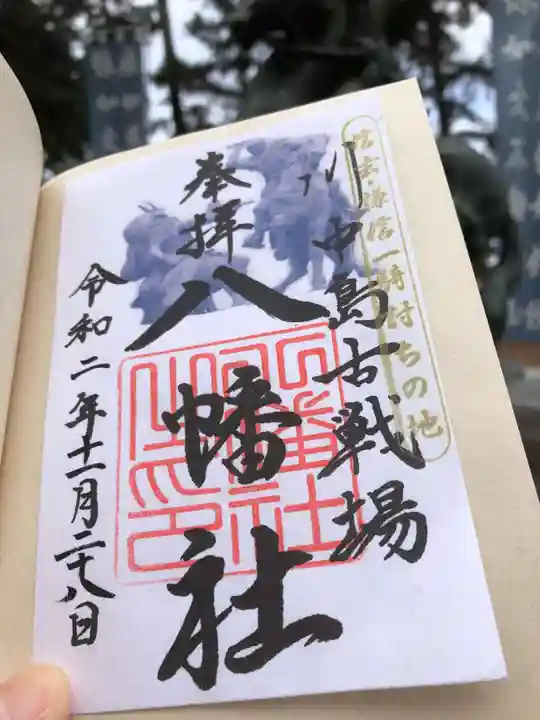 信玄・謙信一騎討ちの地
川中島古戦場
奉拝
八幡社
八幡社之印
令和二年十一月二十八日